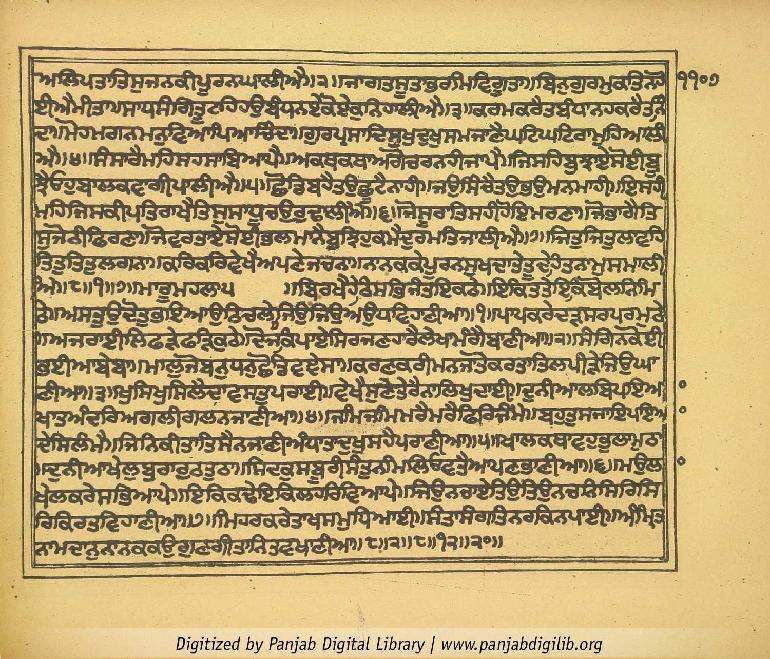 ਅਲਿਪਤਾਤਿਸੁਜਨਕੀਪੂਰਨਘਾਲੀਐ॥੨॥ਜਾਗਤਸੂਤਾਭਰਮਿਵਿਗੂਤਾ॥ਬਿਨੁਗੁਰਮੁਕਤਿਨਹੋ ੧੧੦੭
ਈਐਮੀਤਾ॥ਸਾਧਸੰਗਿਤੁਟਹਿਹਉਬੰਧਨਏਕੋਏਕੁਨਿਹਾਲੀਐ॥੩॥ਕਰਮਕਰੈਤਬੰਧਾਨਹਕਰੈਤਨਿੰ
ਦਾ॥ਮੋਹਮਗਨਮਨੁਵਿਆਪਿਆਚਿੰਦਾ॥ਗੁਰਪ੍ਰਸਾਦਿਸੁਖੁਦੁਖੁਸਮਜਾਣੈਘਟਿਘਟਿਰਾਮੁਹਿਆਲੀ
ਐ॥੪॥ਸੰਸਾਰੈਮਹਿਸਹਸਾਬਿਆਪੈ॥ਅਕਥਕਥਾਅਗੋਚਰਨਹੀਜਾਪੈ॥ਜਿਸਹਿਬੁਝਾਏਸੋਈਬੂ
ਝੈਓਹੁਬਾਲਕਵਾਗੀਪਾਲੀਐ॥੫॥ਛੋਡਿਬਹੈਤਉਛੂਟੈਨਾਹੀ॥ਜਉਸੰਚੈਤਉਭਉਮਨਮਾਹੀ॥ਇਸਹੀ
ਮਹਿਜਿਸਕੀਪਤਿਰਾਖੈਤਿਸੁਸਾਧੂਚਉਰੁਢਾਲੀਐ॥੬॥ਜੋਸੂਰਾਤਿਸਹੀਹੋਇਮਰਣਾ॥ਜੋਭਾਗੈਤਿ
ਸੁਜੋਨੀਫਿਰਣਾ॥ਜੋਵਰਤਾਏਸੋਈਭਲਮਾਨੈਬੁਝਿਹੁਕਮੈਦੁਰਮਤਿਜਾਲੀਐ॥੭॥ਜਿਤੁਜਿਤੁਲਾਵਹਿ
ਤਿਤੁਤਿਤੁਲਗਨਾ॥ਕਰਿਕਰਿਵੇਖੈਅਪਣੇਜਚਨਾ॥ਨਾਨਕਕੇਪੂਰਨਸੁਖਦਾਤੇਤੂਦੇਹਿਤਨਾਮੁਸਮਾਲੀ
ਐ॥੮॥੧॥੭॥ਮਾਰੂਮਹਲਾ੫ ॥ਬਿਰਖੈਹੇਠਿਸਭਿਜੰਤਇਕਠੇ॥ਇਕਿਤਤੇਇਕਿਬੋਲਨਿਮਿ
ਠੇ॥ਅਸਤੁਉਦੋਤੁਭਇਆਉਠਿਚਲੇਜਿਉਜਿਉਅਉਧਵਿਹਾਣੀਆ॥੧॥ਪਾਪਕਰੇਦੜਸਰਪਰਮੁਠੇ
॥ਅਜਰਾਈਲਿਫੜੇਫੜਿਕੁਠੇ॥ਦੋਜਕਿਪਾਏਸਿਰਜਣਹਾਰੈਲੇਖਾਮੰਗੈਬਾਣੀਆ॥੨॥ਸੰਗਿਨਕੋਈ
ਭਈਆਬੇਬਾ॥ਮਾਲੁਜੋਬਨੁਧਨੁਛੋਡਿਵਞੇਸਾ॥ਕਰਣਕਰੀਮਨਜਾਤੋਕਰਤਾਤਿਲਪੀੜੇਜਿਉਘਾ
ਣੀਆ॥੩॥ਖੁਸਿਖੁਸਿਲੈਦਾਵਸਤੁਪਰਾਈ॥ਵੇਖੈਸੁਣੇਤੇਰੈਨਾਲਿਖੁਦਾਈ॥ਦੁਨੀਆਲਬਿਪਇਆ
ਖਾਤਅੰਦਰਿਅਗਲੀਗਲਨਜਾਣੀਆ॥੪॥ਜਮਿਜਮਿਮਰੈਮਰੈਫਿਰਿਜੰਮੈ॥ਬਹੁਤੁਸਜਾਇਪਇਆ
ਦੇਸਿਲੰਮੈ॥ਜਿਨਿਕੀਤਾਤਿਸੈਨਜਾਣੀਅੰਧਾਤਾਦੁਖੁਸਹੈਪਰਾਣੀਆ॥੫॥ਖਾਲਕਥਾਵਹੁਭੁਲਾਮੁਠਾ
॥ਦੁਨੀਆਖੇਲੁਬੁਰਾਰੁਠਤੁਠਾ॥ਸਿਦਕੁਸਬੂਰੀਸੰਤੁਨਮਿਲਿਓਵਤੈਆਪਣਭਾਣੀਆ॥੬॥ਮਉਲਾ
ਖੇਲਕਰੇਸਭਿਆਪੇ॥ਇਕਿਕਢੇਇਕਿਲਹਰਿਵਿਆਪੇ॥ਜਿਉਨਚਾਏਤਿਉਤਿਉਨਚਨਿਸਿਰਿਸਿ
ਰਿਕਿਰਤਵਿਹਾਣੀਆ॥੭॥ਮਿਹਰਕਰੇਤਾਖਸਮੁਧਿਆਈ॥ਸੰਤਾਸੰਗਤਿਨਰਕਿਨਪਾਈ॥ਅੰਮ੍ਰਿਤ
ਨਾਮਦਾਨੁਨਾਨਕਕਉਗੁਣਗੀਤਾਨਿਤਵਖਾਣੀਆ॥੮॥੨॥੮॥੧੨॥੨੦॥
Digitized by Panjab Digital Library | www.panjabdigilib.org